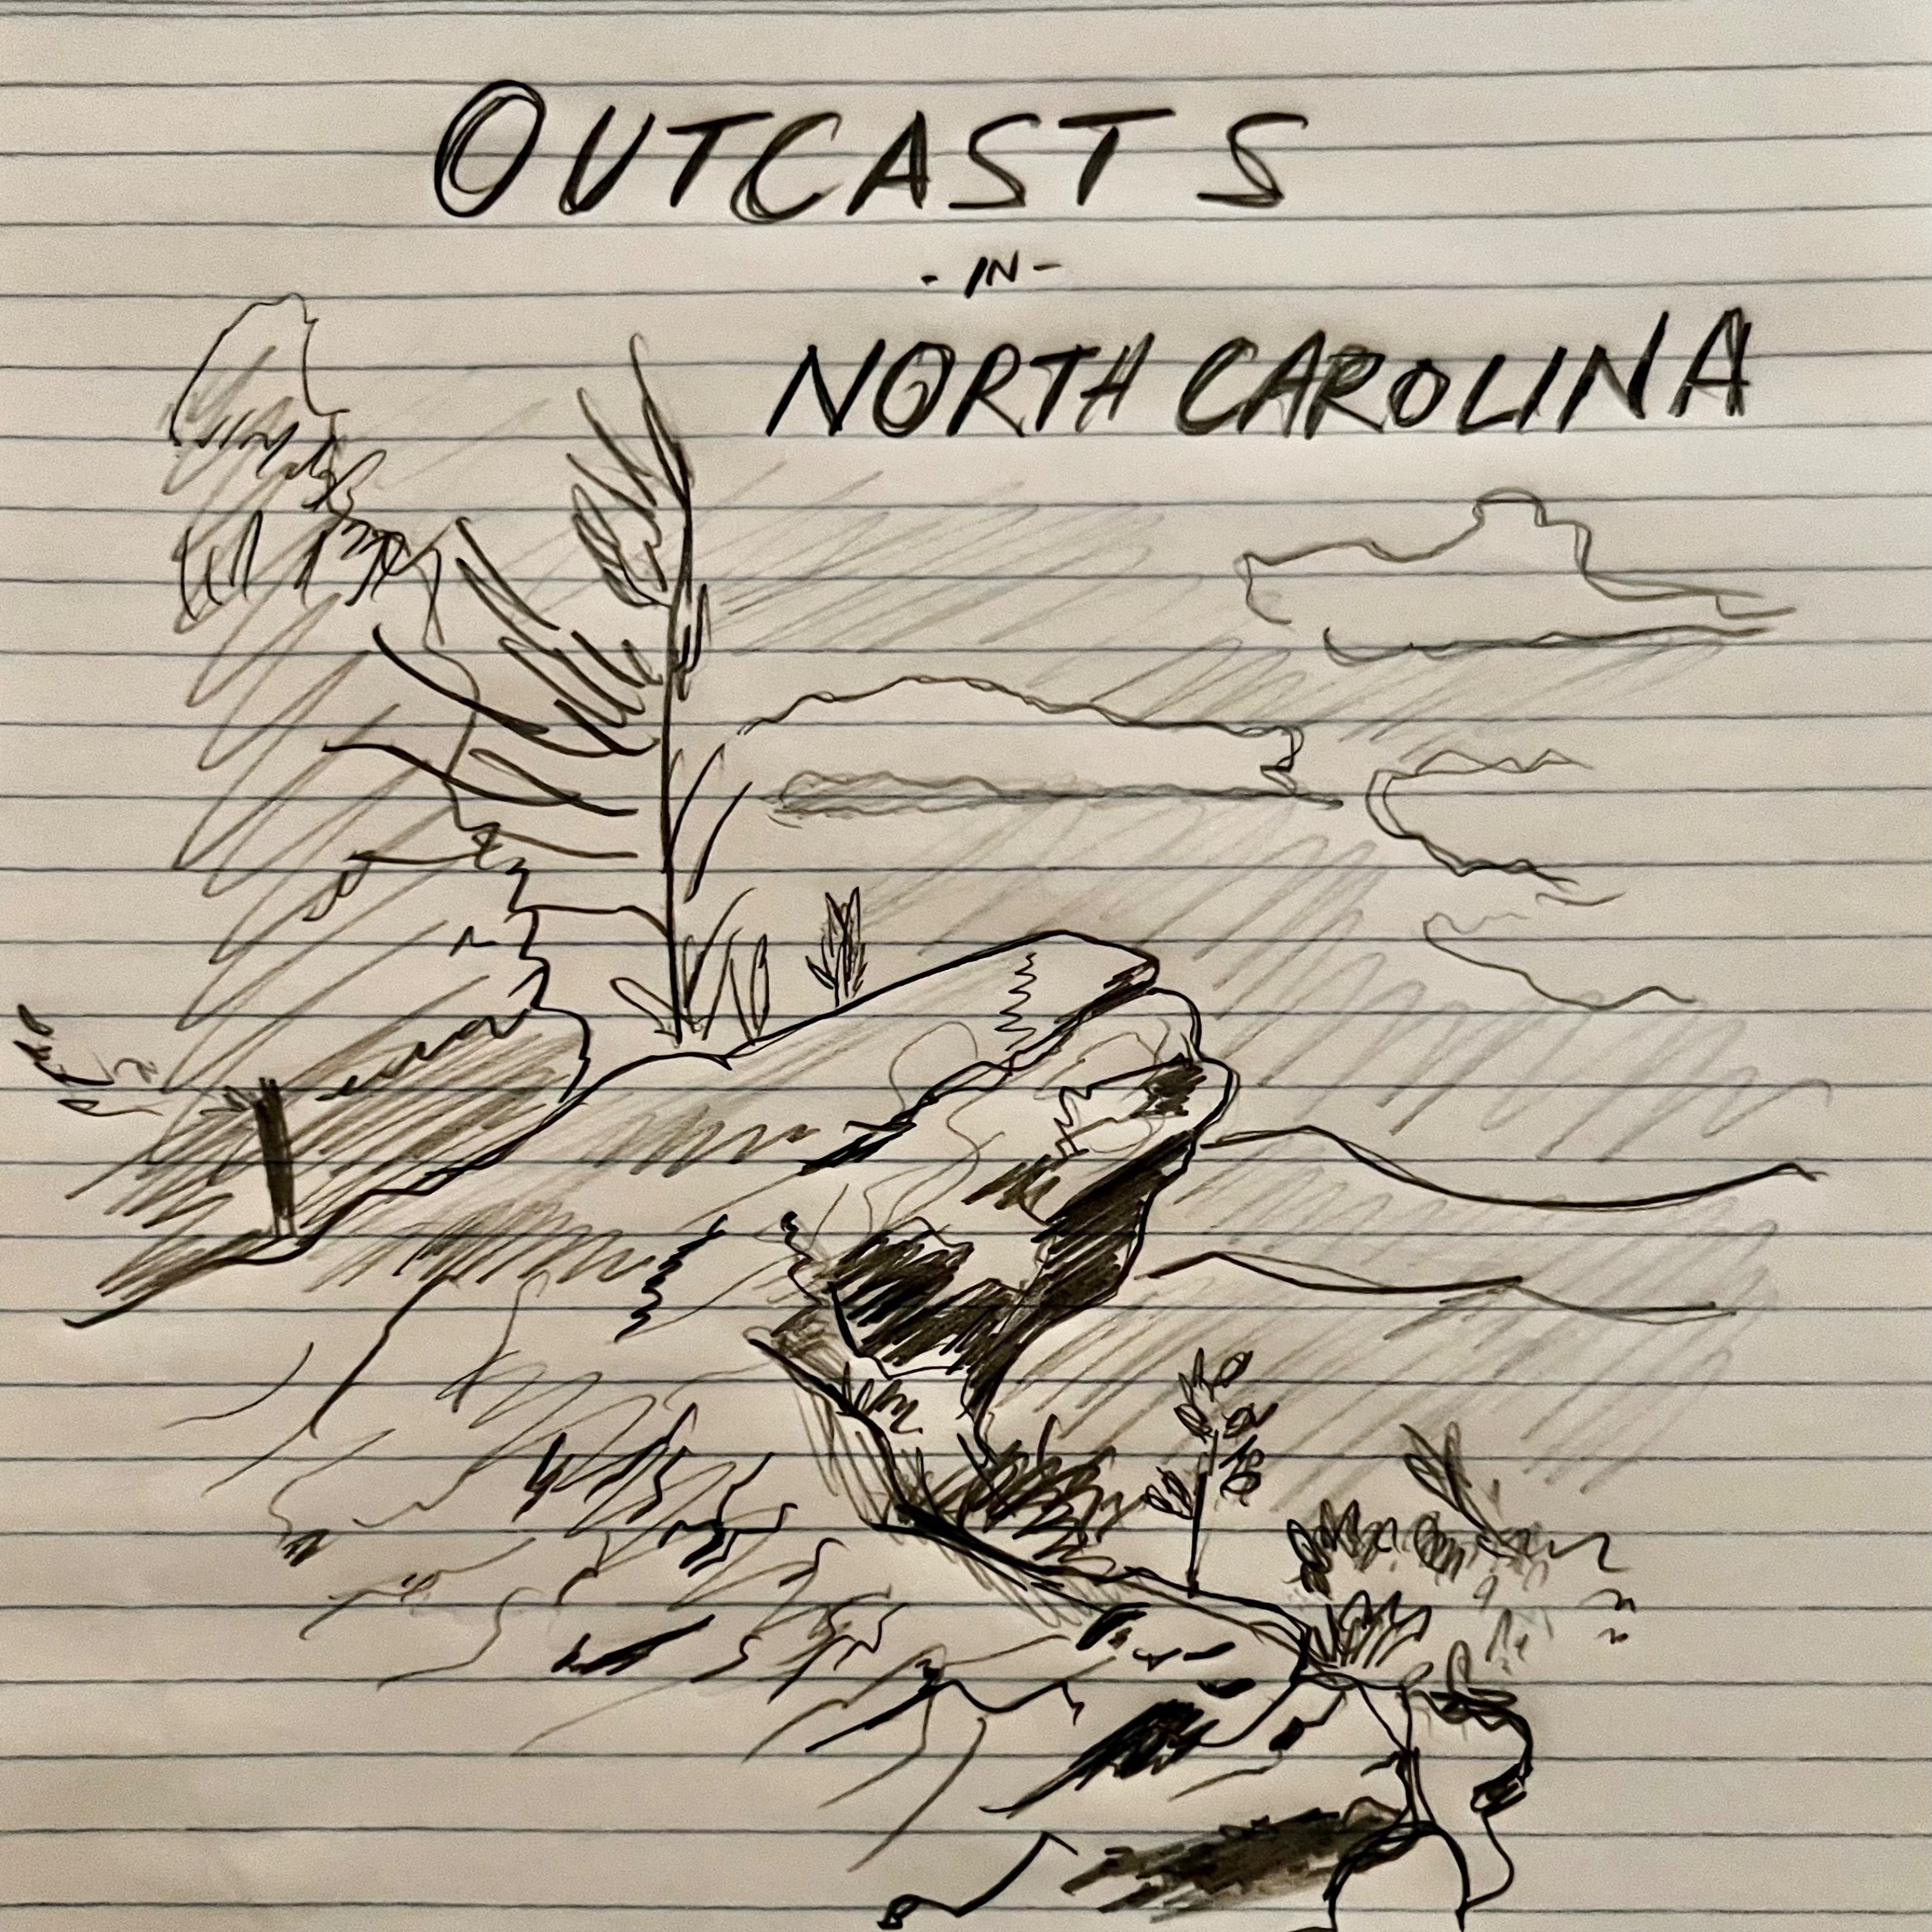 OUTCASTS
- IN -
NORTH CAROLINA